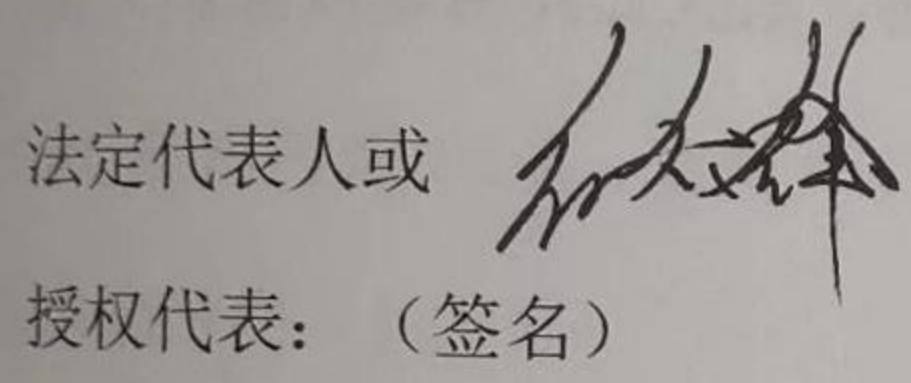 法定代表人或
授权代表：（签名）